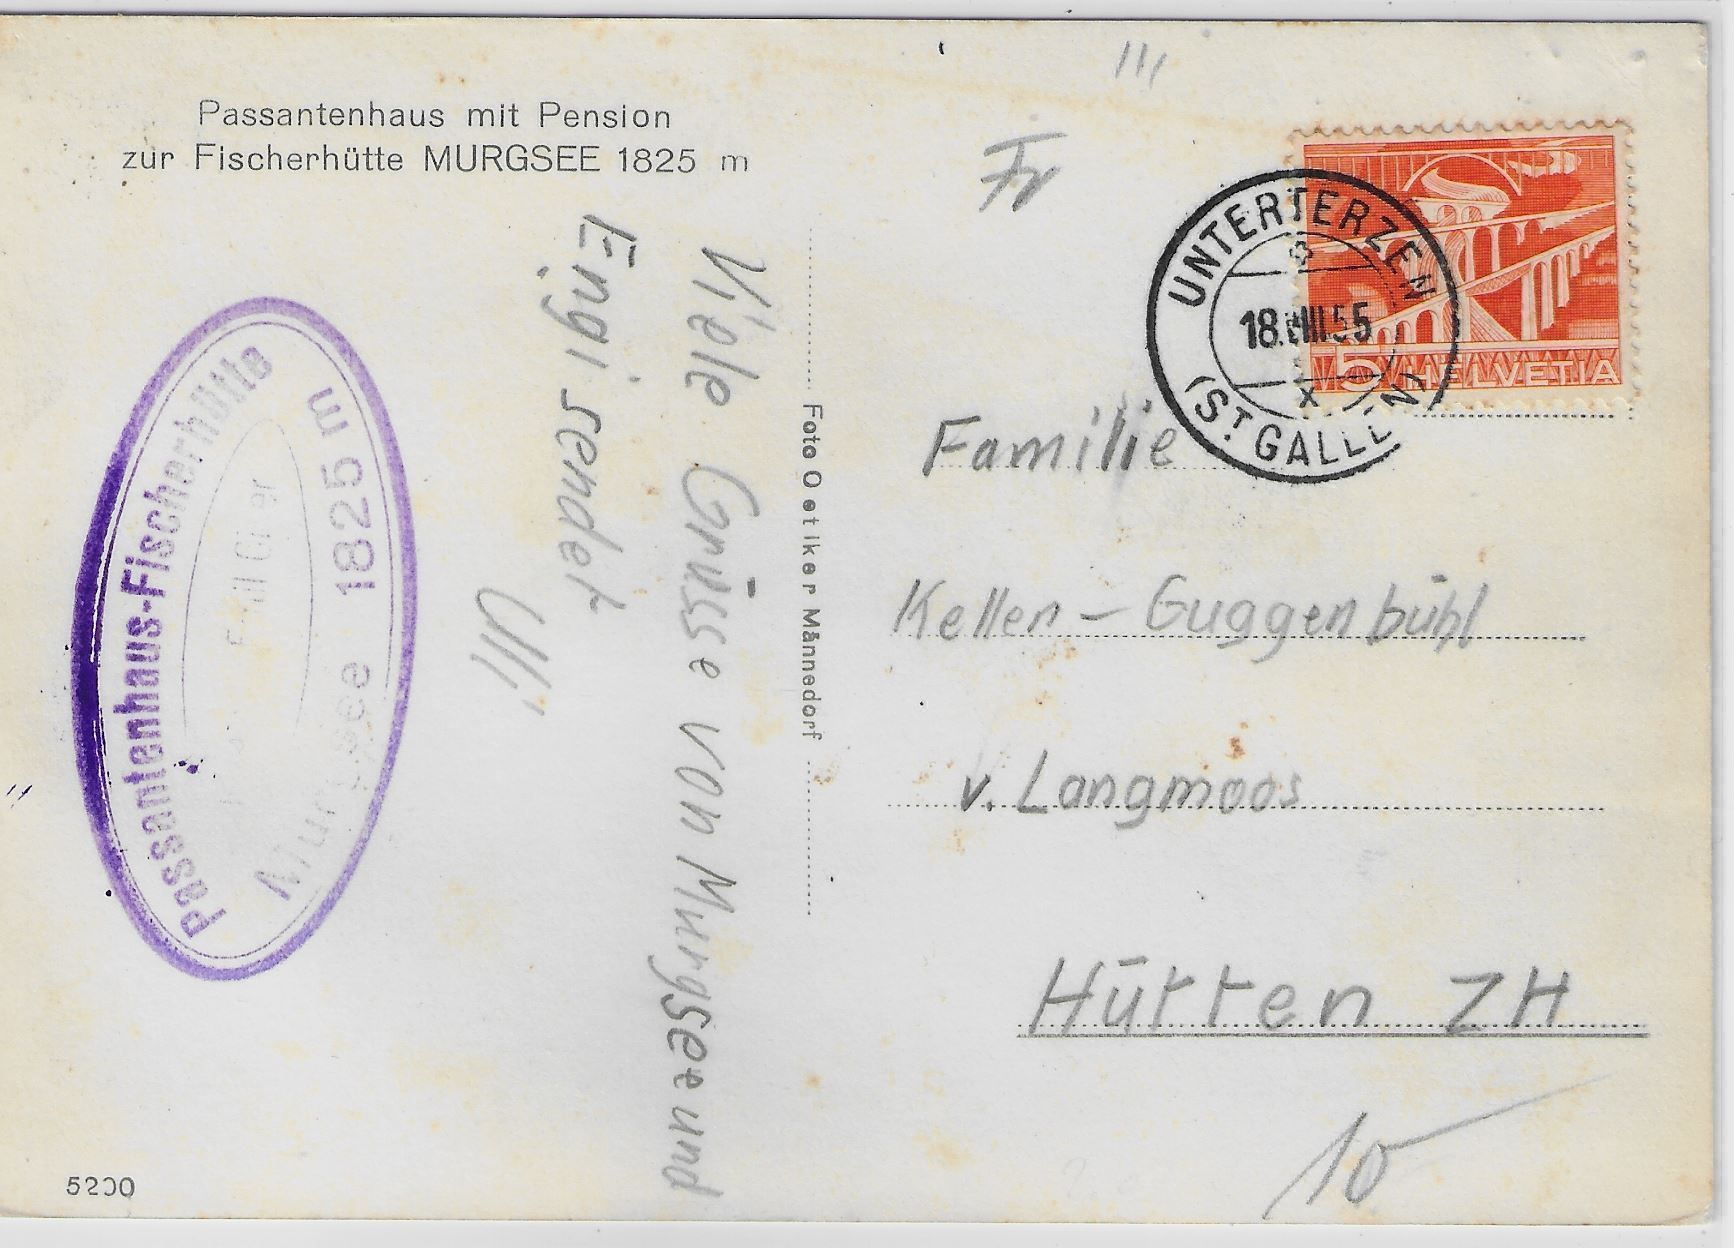 Passantenhaus mit Pension
zur Fischerhütte MURGSEE 1825 m
Passantenhaus-Fischerhütte
Murgsee 1825 m
Viele Grüsse von Murgsee und
Engi sendet
Ulli
Foto Oetiker Männedorf
5200
Fr
UNTERTERZEN
18.VIII.55
x
(ST. GALLEN)
5 HELVETIA
Familie
Keller – Guggenbühl
v. Langmoos
Hütten ZH
10